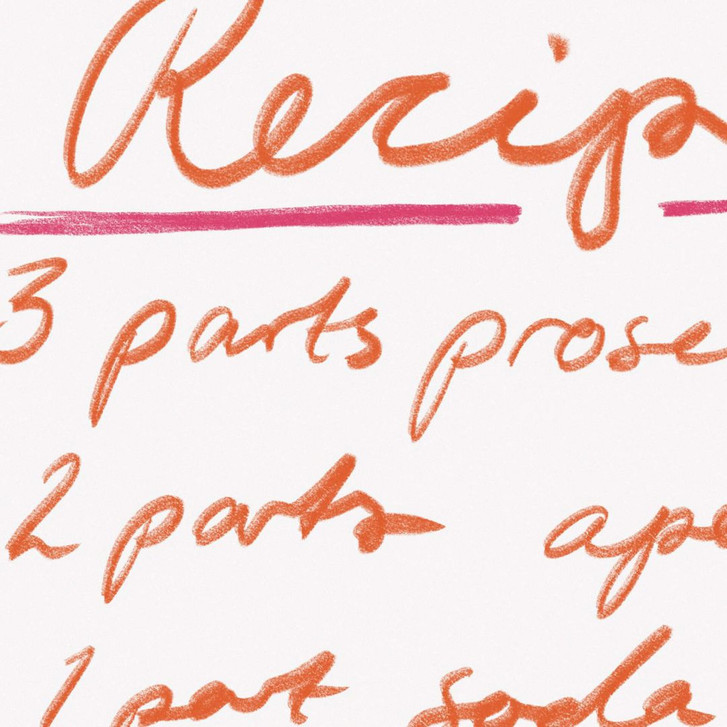 Recip
3 parts prose
2 parts ape
1 part soda